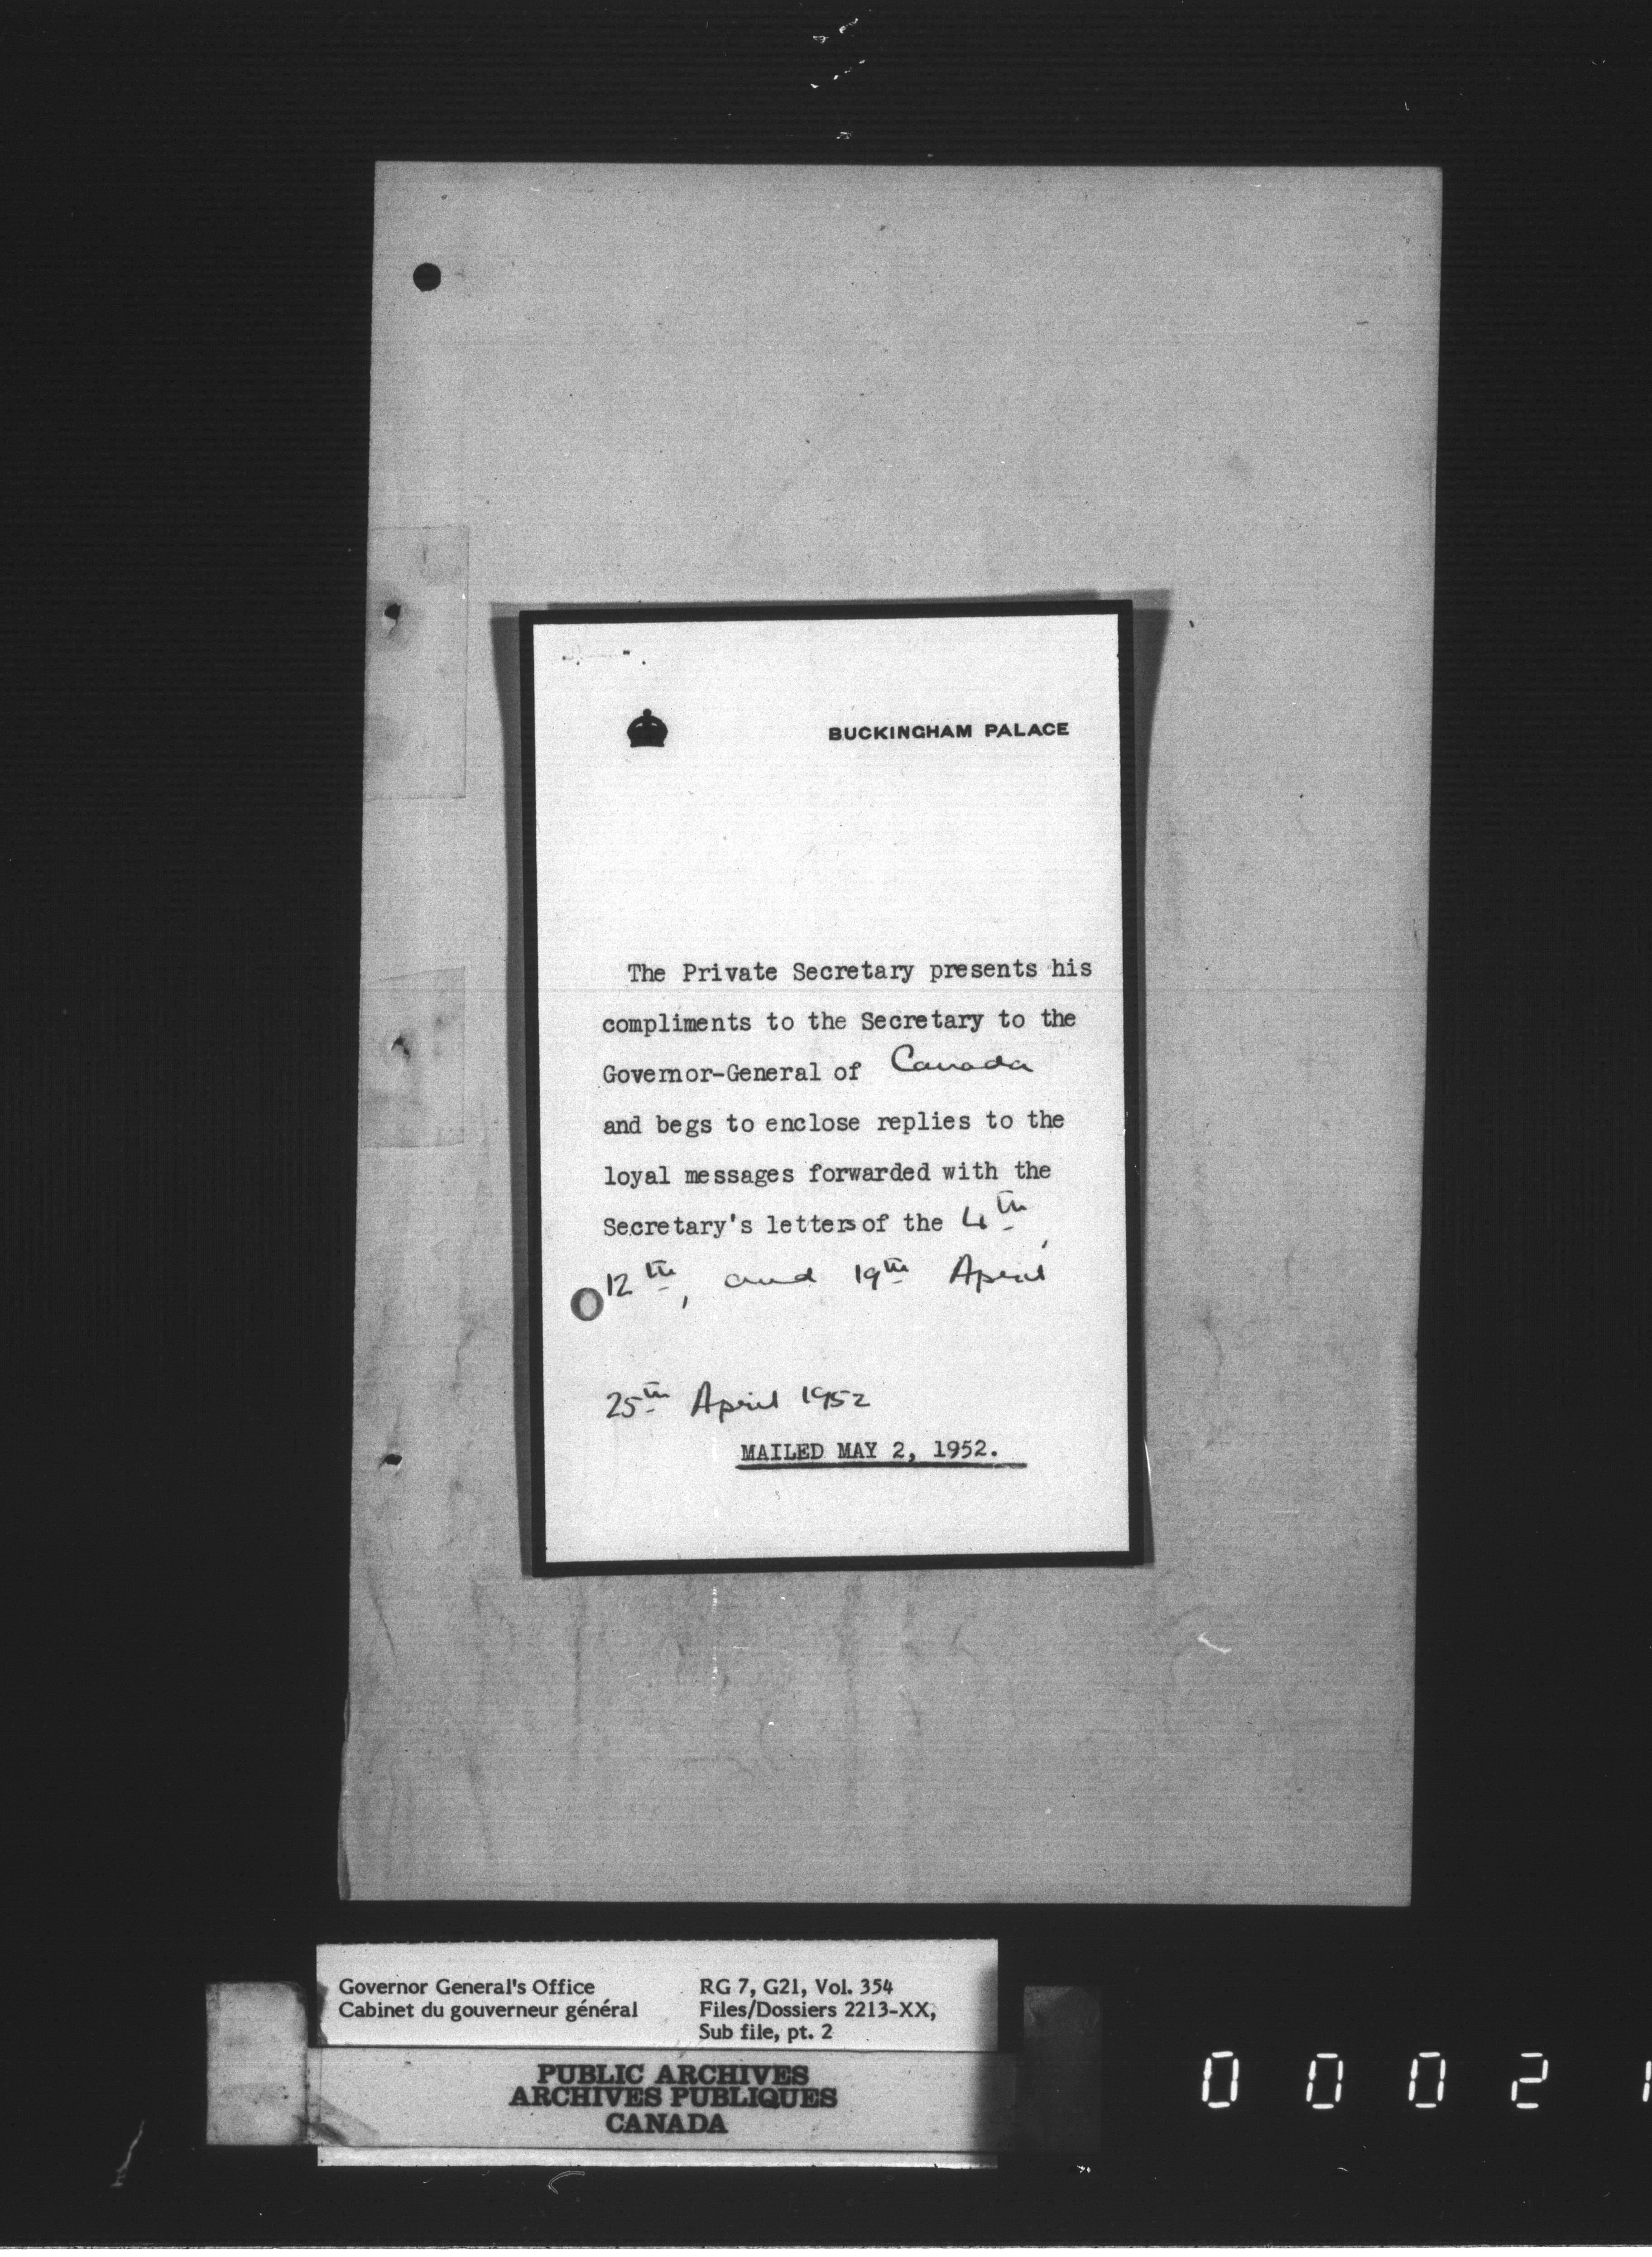 BUCKINGHAM PALACE
The Private Secretary presents his
compliments to the Secretary to the
Governor-General of Canada
and begs to enclose replies to the
loyal messages forwarded with the
Secretary's letters of the 4th,
12th, and 19th April
25th April 1952
MAILED MAY 2, 1952.
Governor General's Office
Cabinet du gouverneur général
RG 7, G21, Vol. 354
Files/Dossiers 2213-XX,
Sub file, pt. 2
PUBLIC ARCHIVES
ARCHIVES PUBLIQUES
CANADA
0 0 0 2 1